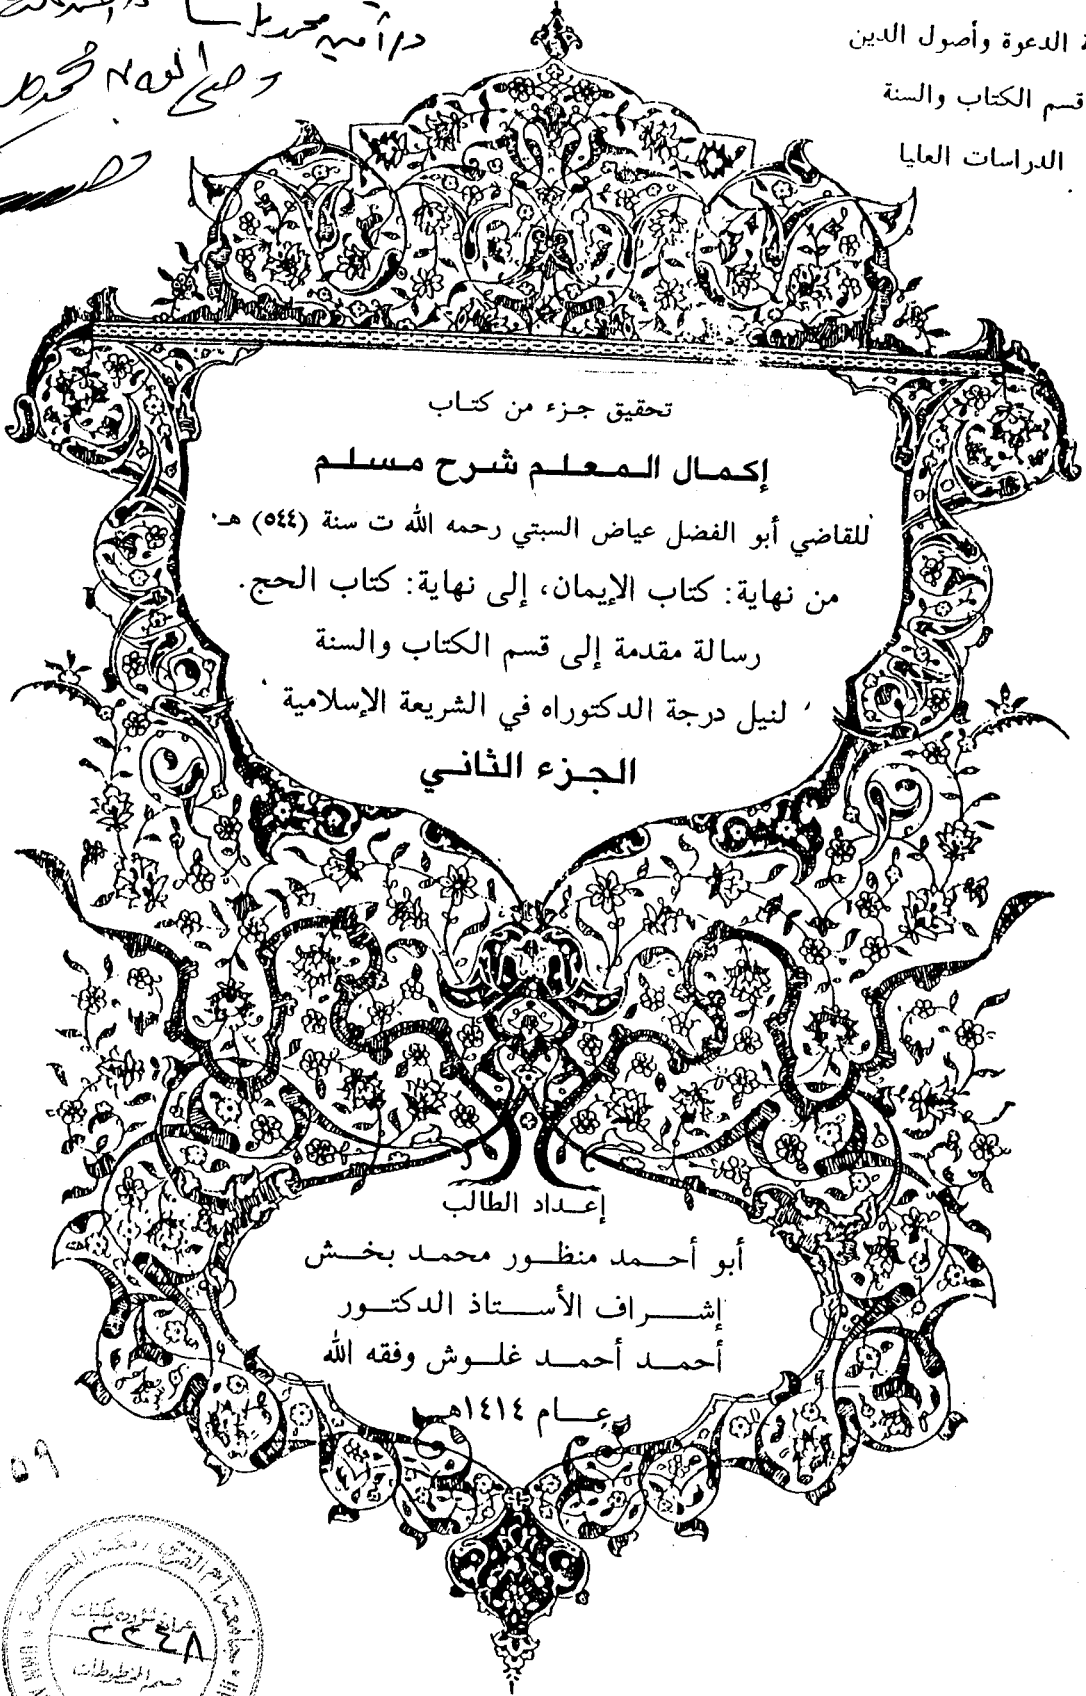 الدعوة وأصول الدين
قسم الكتاب والسنة
الدراسات العليا
تحقيق جزء من كتاب
إكمال المعلم شرح مسلم
للقاضي أبو الفضل عياض السبتي رحمه الله ت سنة (٥٤٤) هـ.
من نهاية: كتاب الإيمان، إلى نهاية: كتاب الحج.
رسالة مقدمة إلى قسم الكتاب والسنة
لنيل درجة الدكتوراه في الشريعة الإسلامية
الجزء الثاني
إعداد الطالب
أبو أحمد منظور محمد بخش
إشراف الأستاذ الدكتور
أحمد أحمد غلوش وفقه الله
عام ١٤١٤هـ
٥٩
جامعة أم القرى
عمادة شؤون المكتبات
٢٢٤٨
قسم المخطوطات